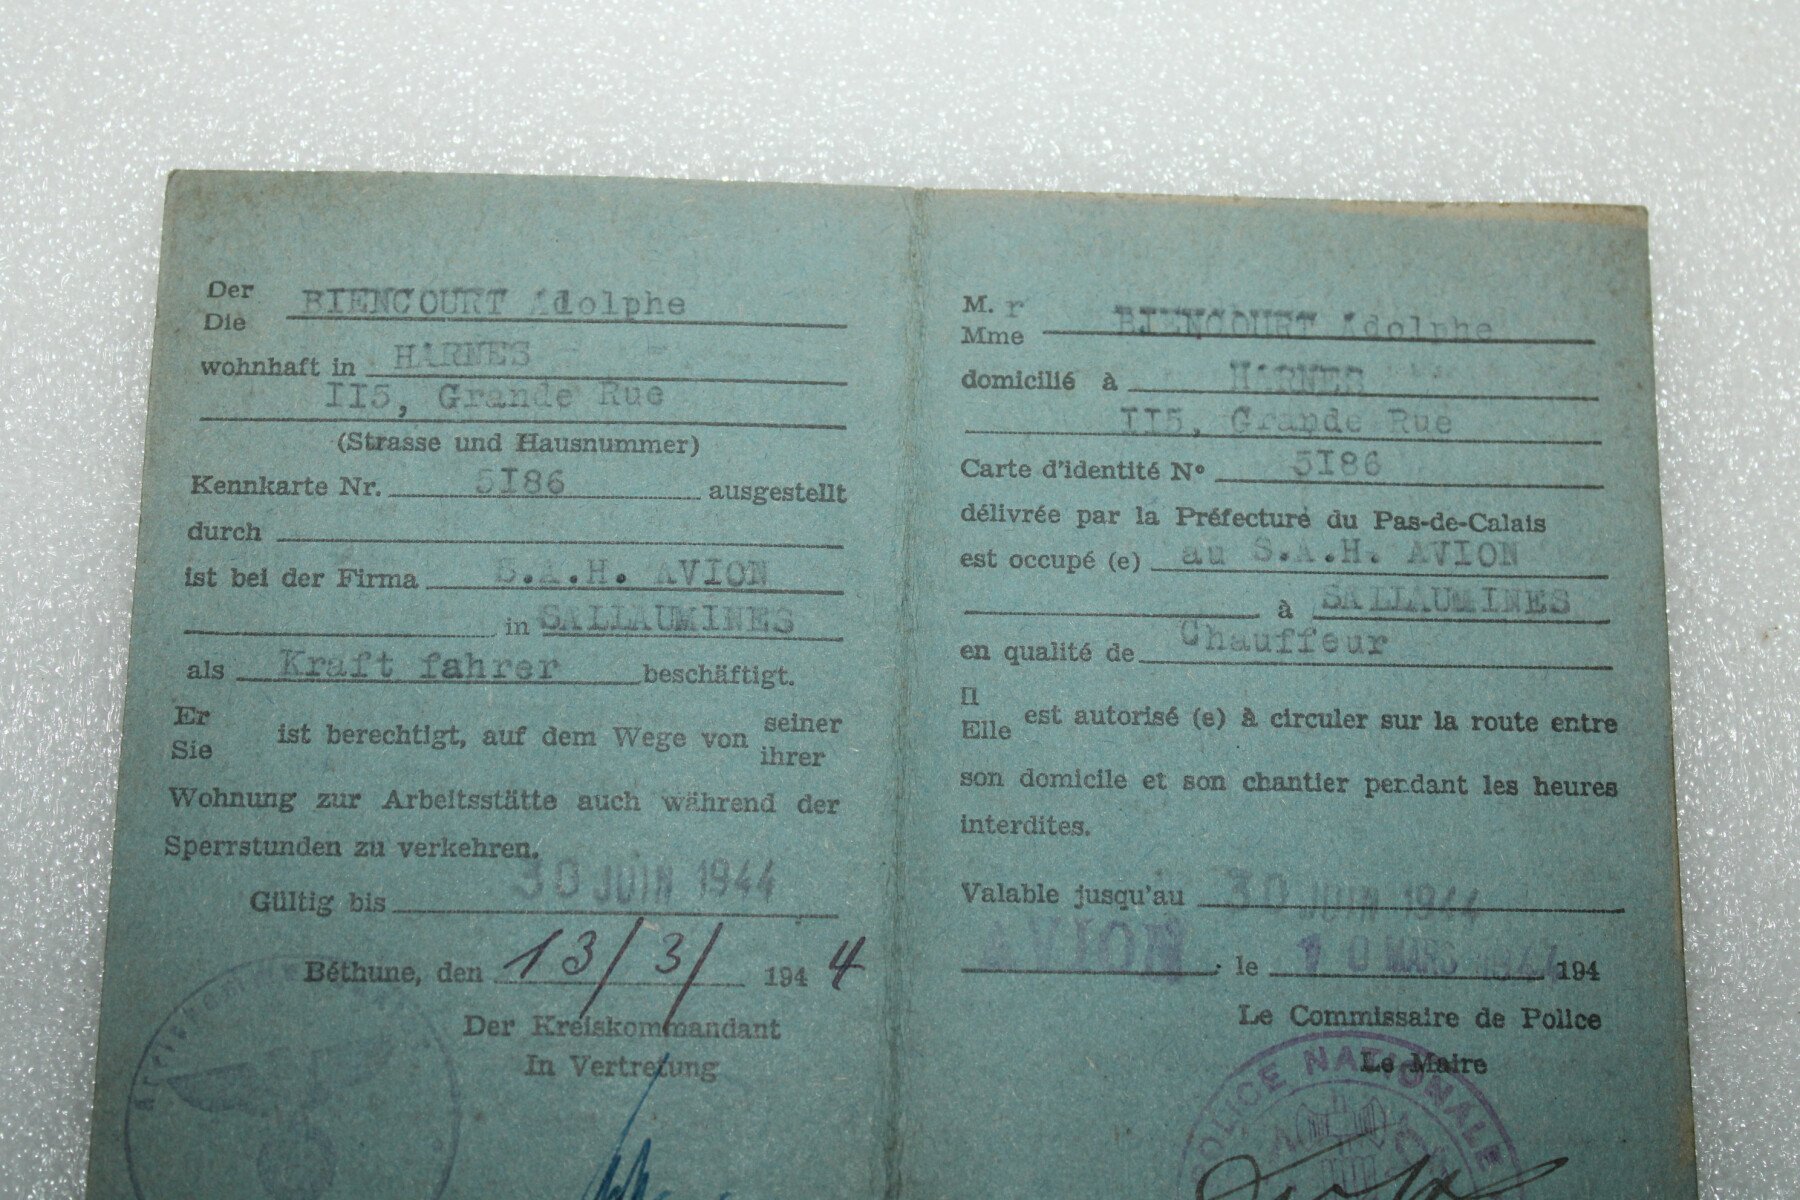 Der
Die
BIENCOURT Adolphe
wohnhaft in HARNES
II5, Grande Rue
(Strasse und Hausnummer)
Kennkarte Nr. 5I86 ausgestellt
durch
ist bei der Firma S.A.H. AVION
in SALLAUMINES
als Kraft fahrer beschäftigt.
Er
Sie
ist berechtigt, auf dem Wege von
seiner
ihrer
Wohnung zur Arbeitsstätte auch während der
Sperrstunden zu verkehren.
Gültig bis 30 JUIN 1944
Béthune, den 13/3/ 1944
Der Kreiskommandant
In Vertretung
M. r
Mme
BIENCOURT Adolphe
domicilié à HARNES
II5, Grande Rue
Carte d'identité N° 5I86
délivrée par la Préfecture du Pas-de-Calais
est occupé (e) au S.A.H. AVION
à SALLAUMINES
en qualité de Chauffeur
Il
Elle
est autorisé (e) à circuler sur la route entre
son domicile et son chantier pendant les heures
interdites.
Valable jusqu'au 30 JUIN 1944
AVION, le 10 MARS 1944 194
Le Commissaire de Police
Le Maire
POLICE NATIONALE